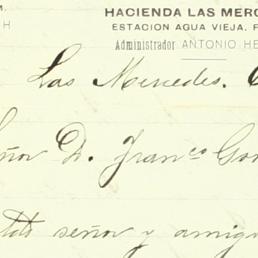 HACIENDA LAS MERC
ESTACION AGUA VIEJA. F
Administrador ANTONIO HE
Las Mercedes.
ñor D. Franco Gon
señor y amig